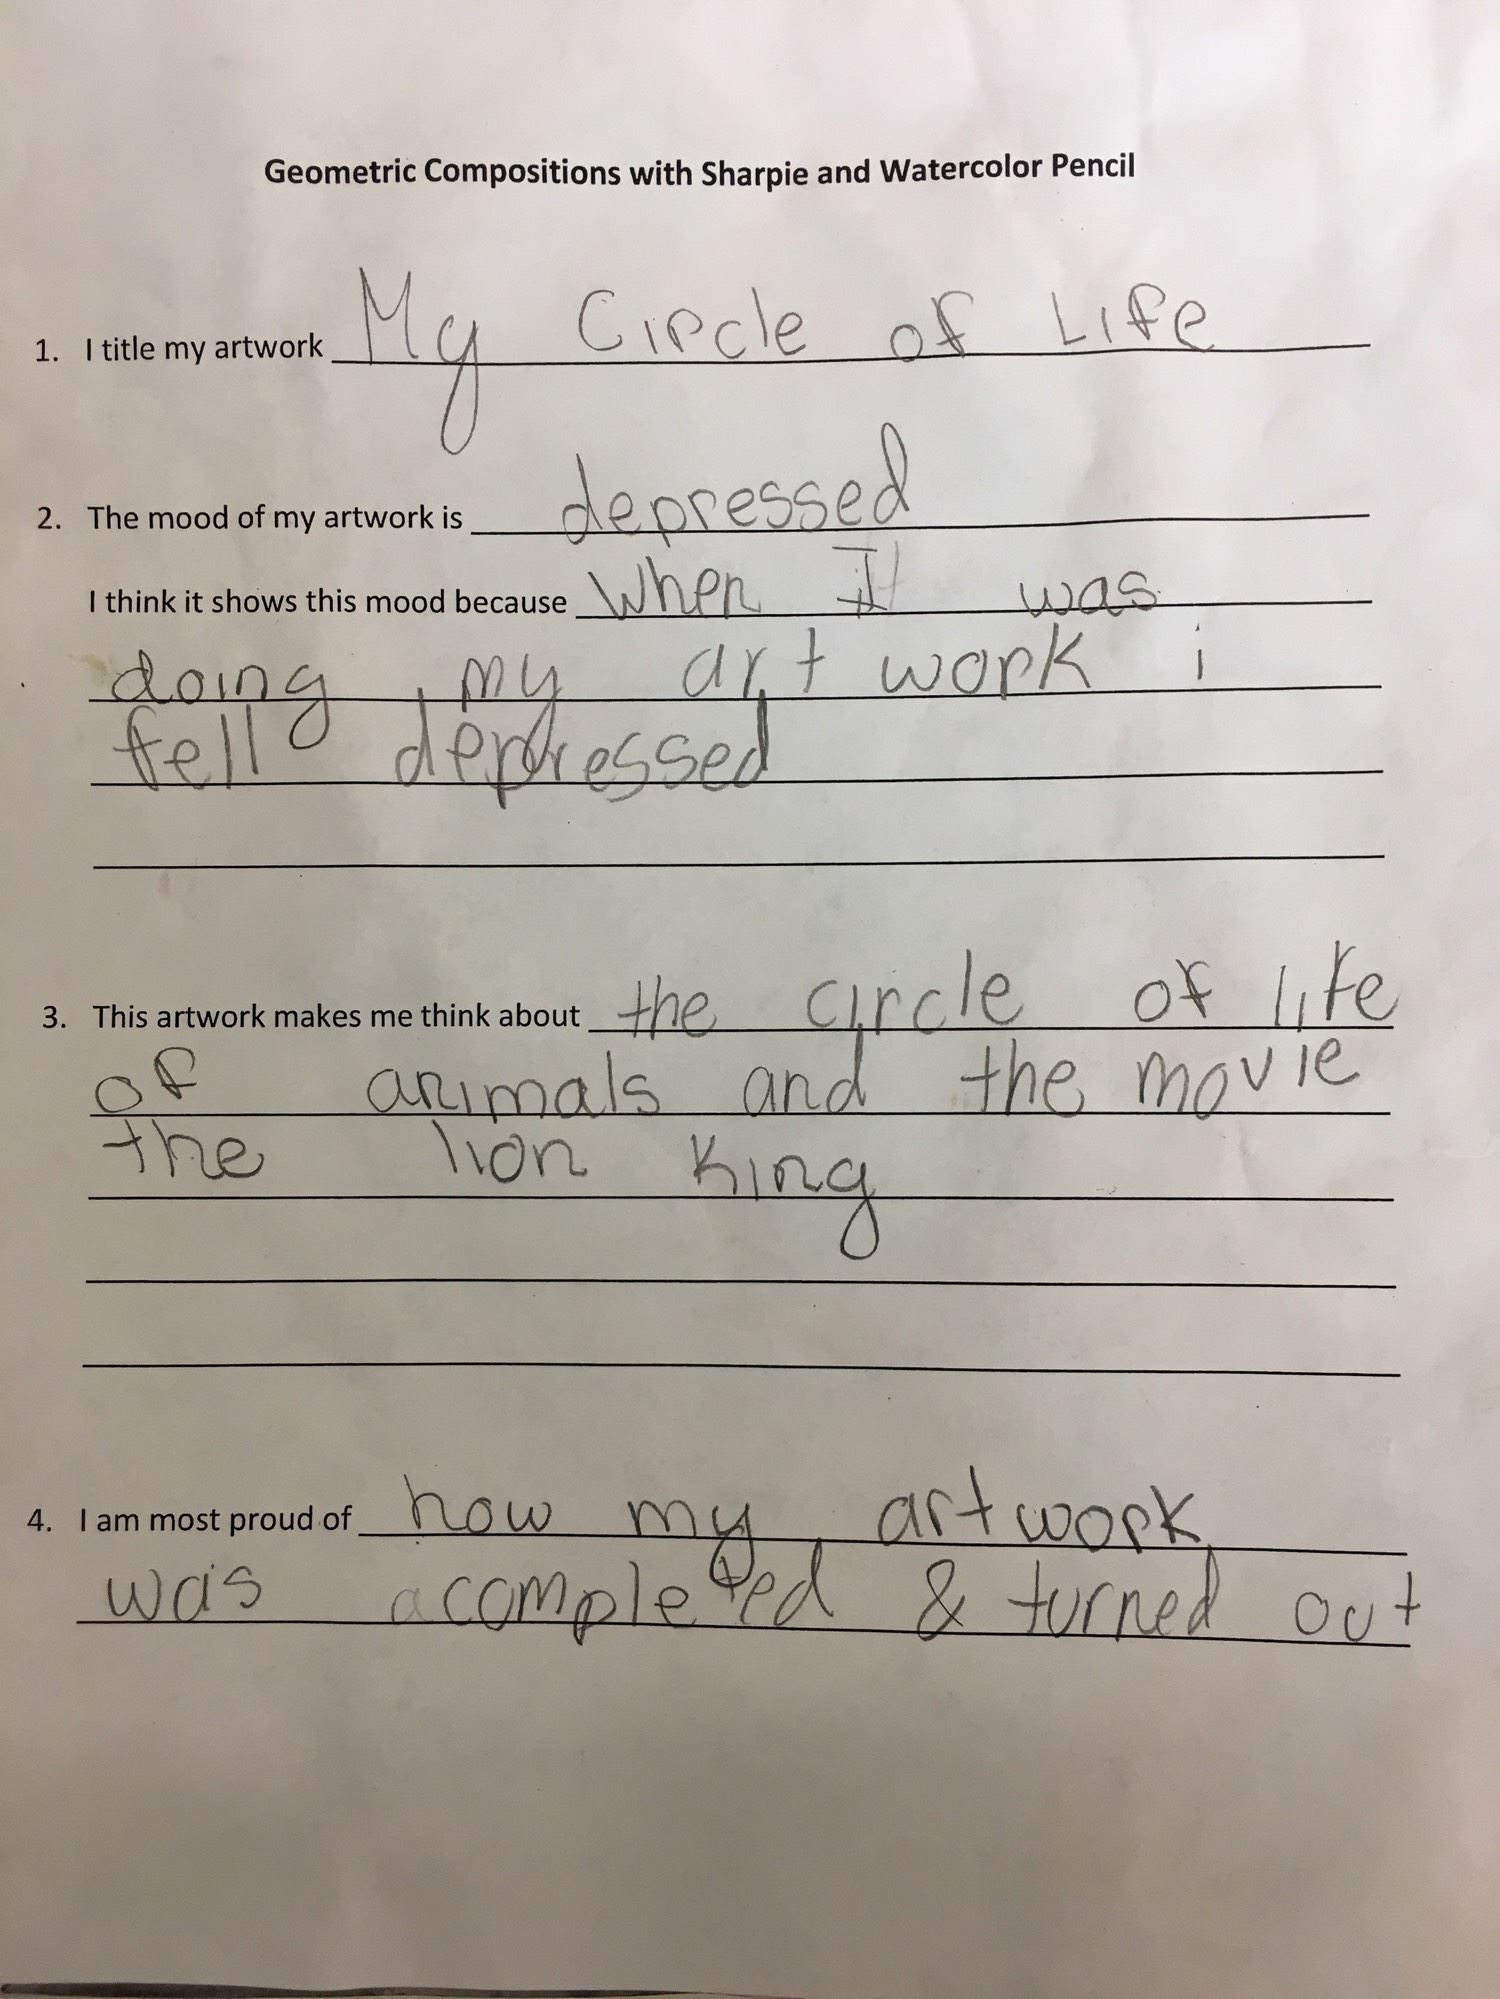 Geometric Compositions with Sharpie and Watercolor Pencil
1. I title my artwork My Circle of Life
2. The mood of my artwork is depressed
I think it shows this mood because when I was
doing my art work i
fell depressed
3. This artwork makes me think about the circle of life
of animals and the movie
the lion King
4. I am most proud of how my artwork
was acompleted & turned out